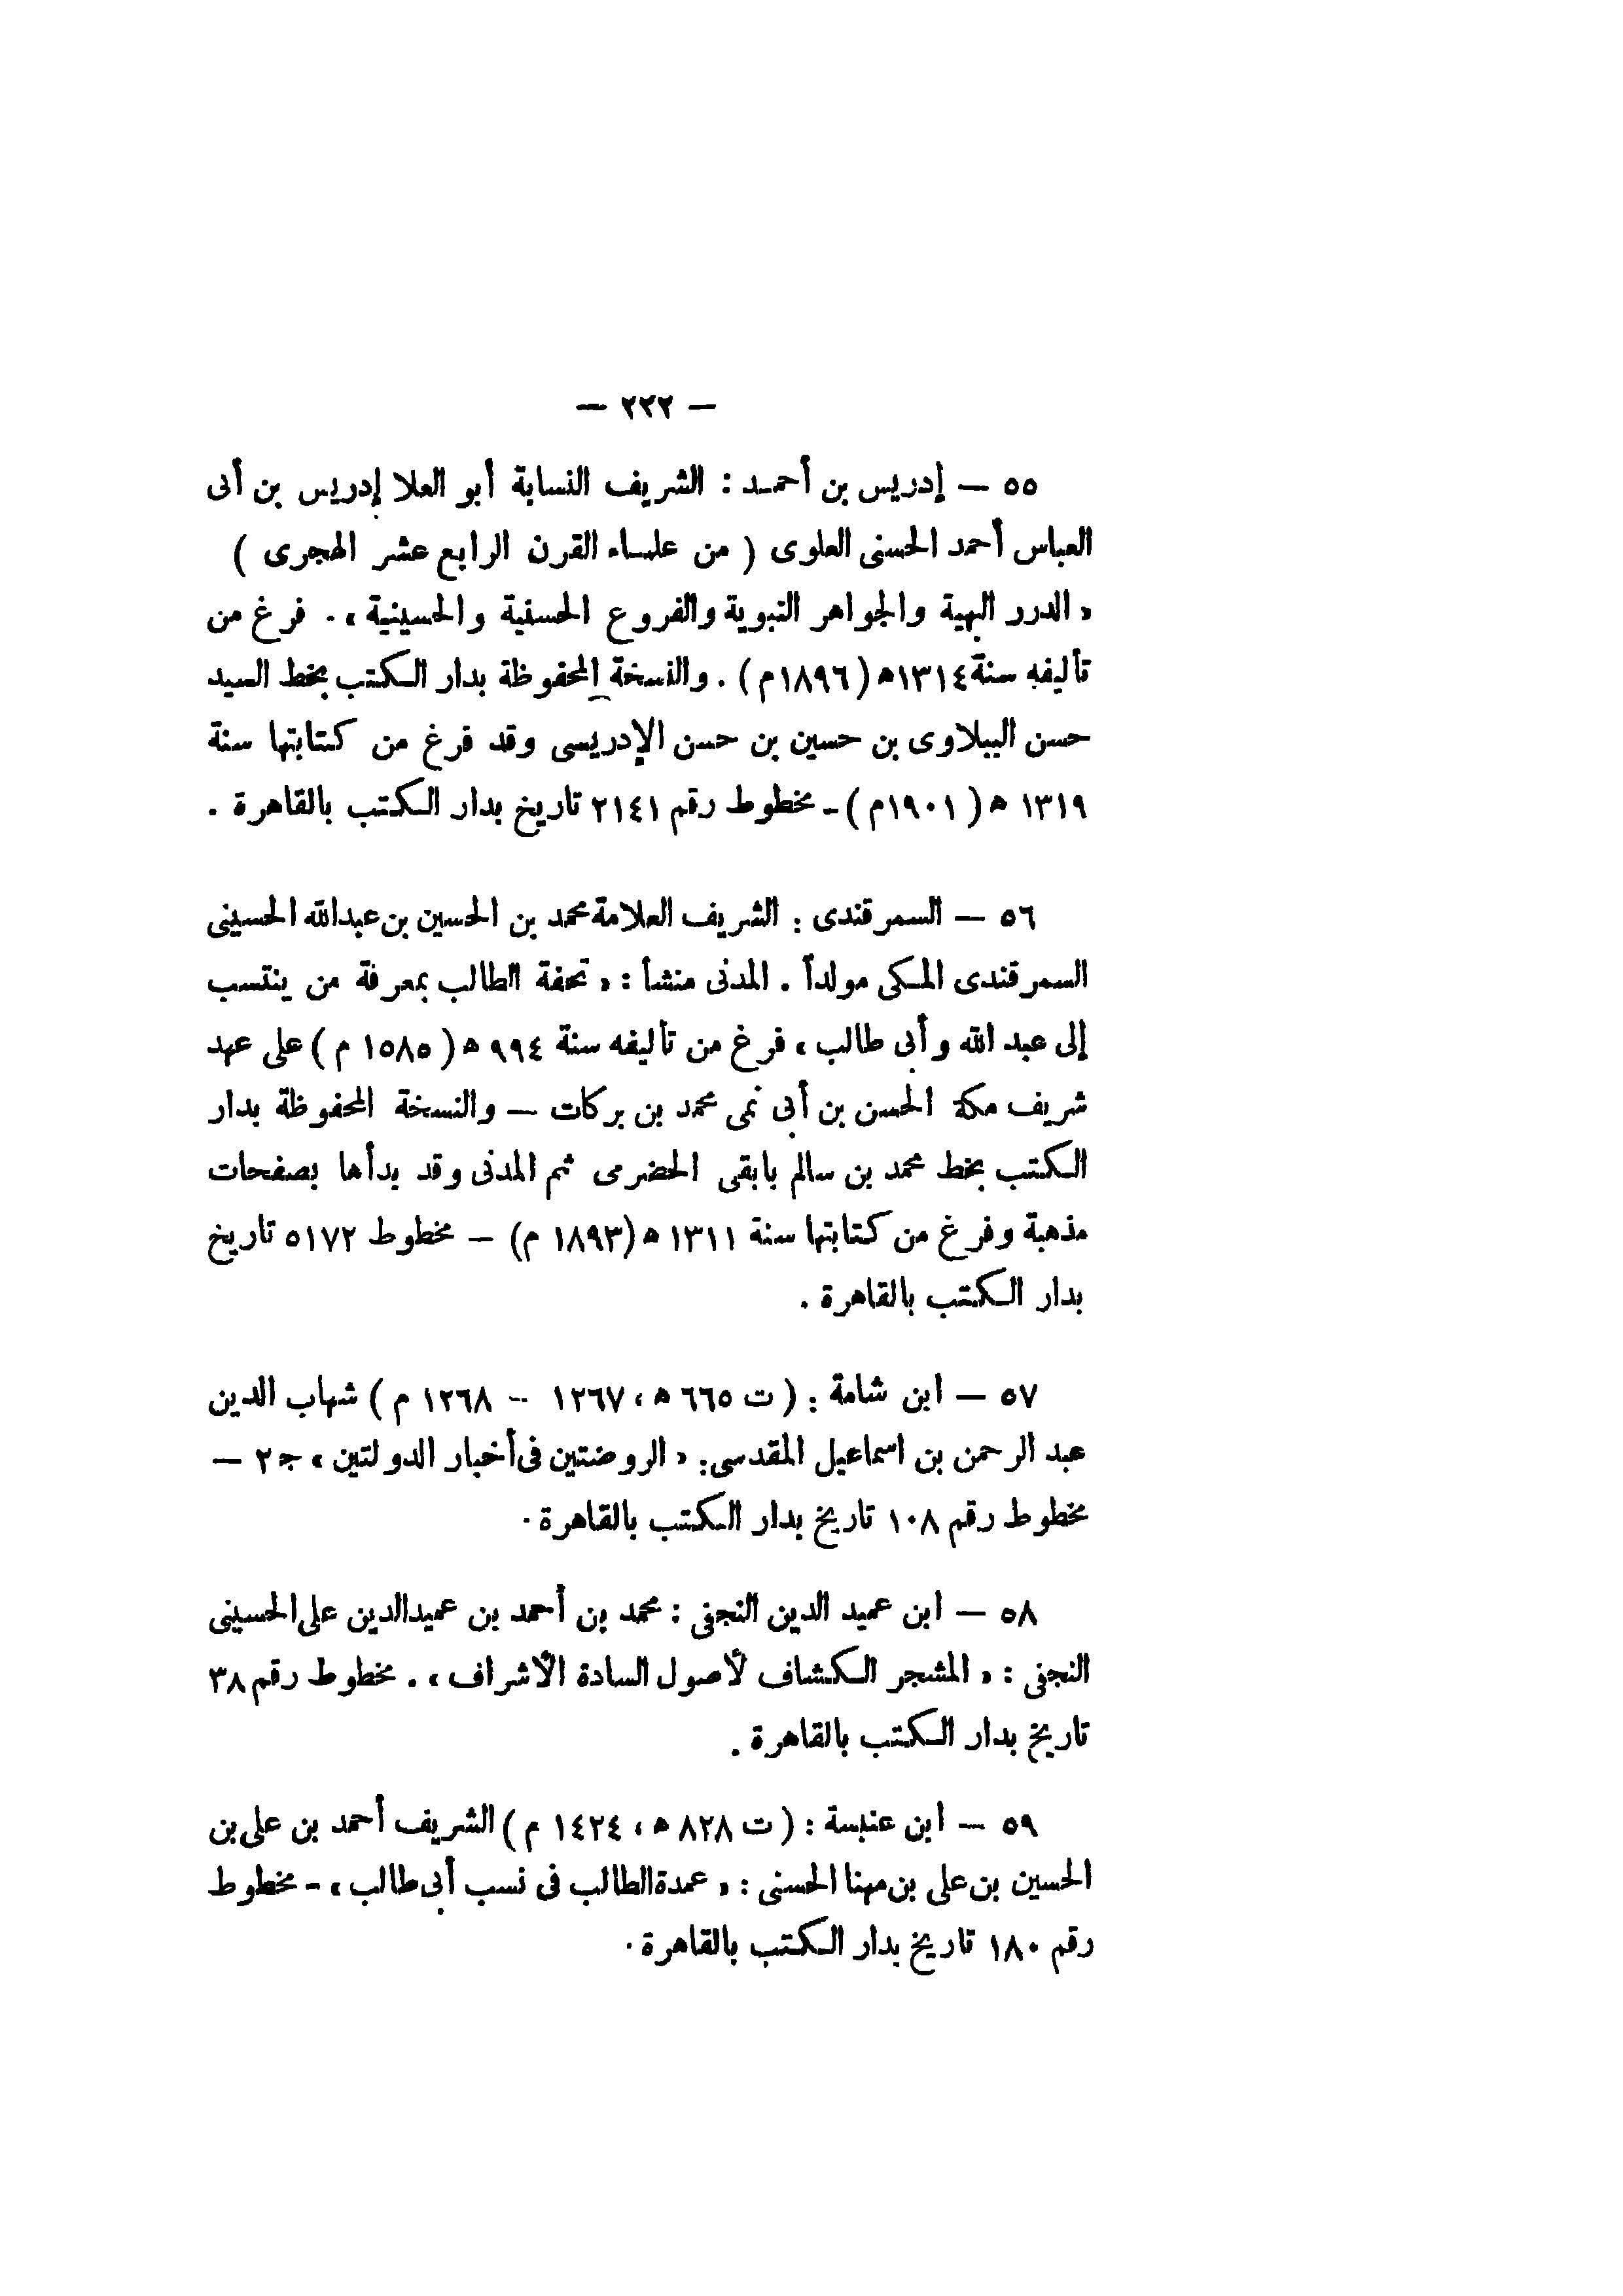 — ٢٣٢ —
٥٥ — إدريس بن أحمد : الشريف النسابة أبو العلا إدريس بن أبى
العباس أحمد الحسنى العلوى ( من علماء القرن الرابع عشر الهجرى )
« الدرر البهية والجواهر النبوية والفروع الحسنية والحسينية » . فرغ من
تأليفه سنة ١٣١٤ه (١٨٩٦م) . والنسخة المحفوظة بدار الكتب بخط السيد
حسن الببلاوى بن حسين بن حسن الإدريسى وقد فرغ من كتابتها سنة
١٣١٩ ه ( ١٩٠١م ) – مخطوط رقم ٢١٤١ تاريخ بدار الكتب بالقاهرة .
٥٦ — السمرقندى : الشريف العلامة محمد بن الحسين بن عبدالله الحسينى
السمرقندى المكى مولداً . المدنى منشأ : « تحفة الطالب بمعرفة من ينتسب
إلى عبد الله وأبى طالب » فرغ من تأليفه سنة ٩٩٤ ه ( ١٥٨٥ م ) على عهد
شريف مكة الحسن بن أبى نمى محمد بن بركات — والنسخة المحفوظة بدار
الكتب بخط محمد بن سالم بابقى الحضرمى ثم المدنى وقد بدأها بصفحات
مذهبة وفرغ من كتابتها سنة ١٣١١ ه (١٨٩٣ م) — مخطوط ٥١٧٢ تاريخ
بدار الكتب بالقاهرة .
٥٧ — ابن شامة : ( ت ٦٦٥ ه ، ١٢٦٧ – ١٢٦٨ م ) شهاب الدين
عبد الرحمن بن اسماعيل المقدسى : « الروضتين فى أخبار الدولتين » ج٢ —
مخطوط رقم ١٠٨ تاريخ بدار الكتب بالقاهرة .
٥٨ — ابن عميد الدين النجفى : محمد بن أحمد بن عميدالدين على الحسينى
النجفى : « المشجر الكشاف لأصول السادة الأشراف » . مخطوط رقم ٣٨
تاريخ بدار الكتب بالقاهرة .
٥٩ — ابن عنبسة : ( ت ٨٢٨ ه ، ١٤٢٤ م ) الشريف أحمد بن على بن
الحسين بن على بن مهنا الحسنى : « عمدة الطالب فى نسب أبى طالب » – مخطوط
رقم ١٨٠ تاريخ بدار الكتب بالقاهرة .